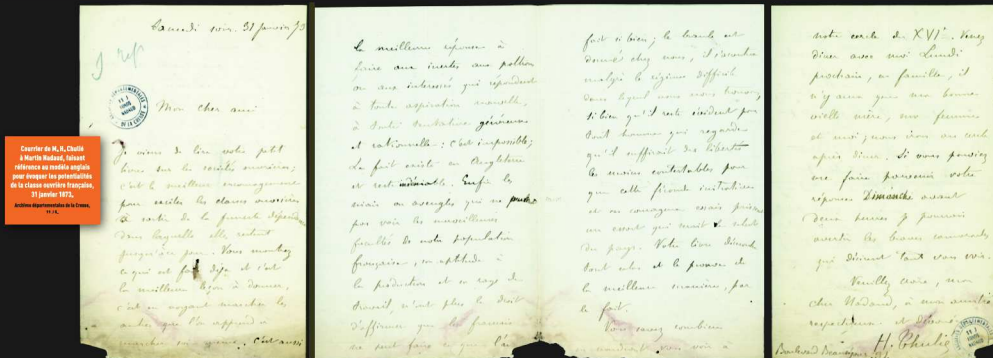 Courrier de M. R. Chulié
à Martin Nadaud, faisant
référence au modèle anglais
pour évoquer les potentialités
de la classe ouvrière française,
31 janvier 1873.
Archives départementales de la Creuse,
Samedi soir. 31 janvier 73
Mon cher ami
Je viens de lire votre petit
livre sur les sociétés ouvrières;
c'est le meilleur encouragement
pour exciter les classes ouvrières
à sortir de la
dans laquelle elle restent
jusqu'au jour. Vous montrez
ce qui est fait déjà et c'est
la meilleure leçon à donner,
c'est en voyant marcher les
autres que l'on apprend à
marcher c'est aussi
la meilleure réponse à
faire aux inertes aux poltrons
ou aux intéressés qui répondent
à toute aspiration nouvelle,
à toute tentative généreuse
et rationnelle: c'est impossible;
Le fait existe en Angleterre
et reste indéniable. Enfin le
niais ou aveugles qui ne
pas voir les merveilleuses
facultés de notre population
française, son aptitude à
la production et sa rage de
travail n'ont plus le droit
d'affirmer que les français
ne sont
fait si bien; le branle est
donné chez nous, il s'accentue
malgré le régime difficile
dans lequel nous nous trouvons,
si bien qu'il reste évident pour
tout homme qui regarde
qu'il suffirait des libertés
les moins contestables pour
que cette féconde initiative
et ce courageux essais
un essort qui serait le salut
du pays. Votre livre
tout cela et le prouve de
la meilleure manière, par
le fait.
Vous savez combien
voir à
notre cercle du XVIe. Venez
dîner avec moi Lundi
prochain, en famille, il
n'y aura que ma bonne
vieille mère, ma femme
et moi; nous irons au cercle
après dîner. Si vous pouviez
me faire parvenir votre
réponse Dimanche avant
deux heures je pourrais
avertir les braves camarades
qui désirent tant vous voir.
Veuillez croire, mon
cher Nadaud, à mon amitié
respectueuse et dévouée
H. Chulié
Boulevard